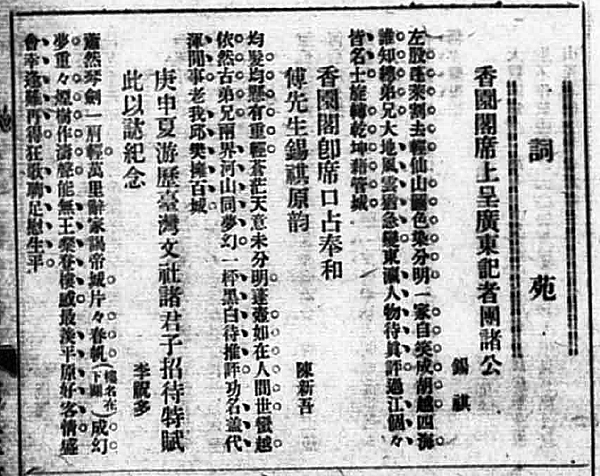 詞苑
香園閣席上呈廣東記者團諸公
錫祺
左股蓬萊割去輕仙山國色集分明一家自笑成胡越四海
誰知總弟兄大地風雲急變東瀛人物待眞評過江個々
皆名士旋轉乾坤藉管城
香園閣卽席口占奉和
傅先生錫祺原韵
陳新吾
均髮均懸有重輕蒼茫天意未分明蓬壺如在人間世蠻越
依然古弟兄兩界河山同夢幻一杯黑白待推評功名蓋代
渾閒事老我邱樊擁百城
庚申夏游歷臺灣文社諸君子招待特賦
此以誌紀念
李祝多
蕭然琴劍一肩輕萬里辭家謁帝城片々春帆(樓名在下關)成幻
夢重々煙樹作濤聲能無王粲登樓感最羨平原好客情盛
會幸逢難再得狂歌聊足慰生平